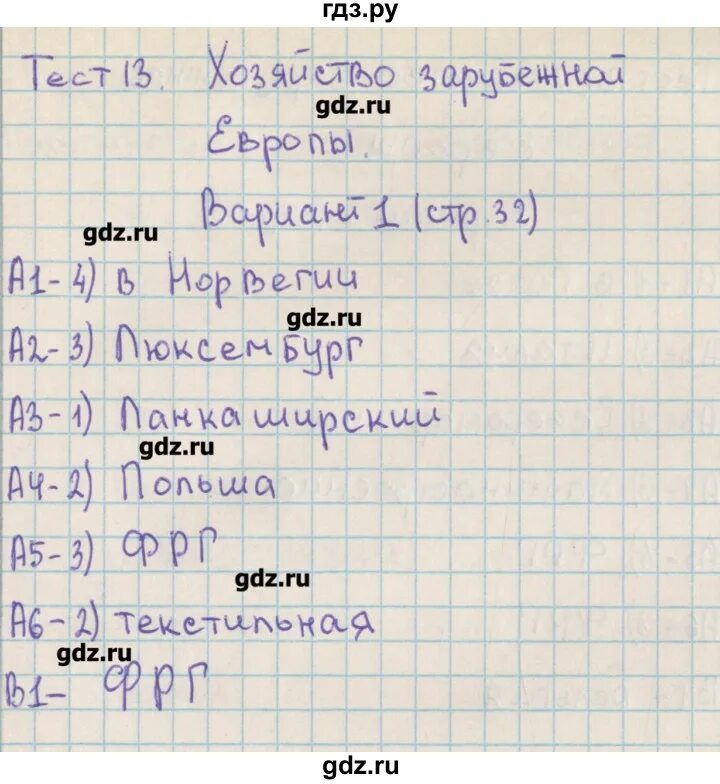 гдз.ру
Тест 13. Хозяйство зарубежной
gdz.ru
Европы.
Вариант 1 (стр. 32)
gdz.ru
А1-4) в Норвегии
gdz.ru
А2-3) Люксембург
А3-1) Ланкаширский
gdz.ru
А4-2) Польша
А5-3) ФРГ
gdz.ru
А6-2) текстильная
gdz.ru
В1- ФРГ
gdz.ru